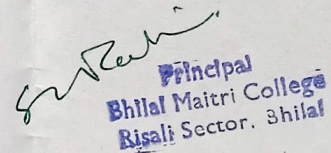 Principal
Bhilai Maitri College
Risali Sector, Bhilai